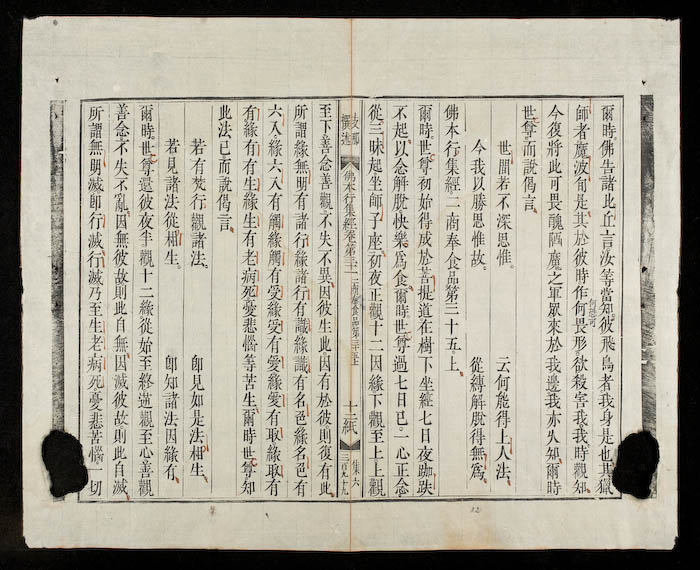 爾時佛告諸比丘言汝等當知彼飛鳥者我身是也其獵
師者魔波旬是其於彼時作何畏形欲殺害我我時觀知
何恐可
今復將此可畏醜陋魔之軍眾來於我邊我亦久知爾時
世尊而說偈言
世間若不深思惟 云何能得上人法
今我以勝思惟故 從縛解脫得無為
佛本行集經二商奉食品第三十五上
爾時世尊初始得成於菩提道在樹下坐經七日夜跏趺
不起以念解脫快樂為食爾時世尊過七日已一心正念
從三昧起坐師子座初夜正觀十二因緣下觀至上上觀
支那
撰述 佛本行集經卷第三十二 二商奉食品第三十五上 十二紙 集六
至下善念善觀不失不異因彼生此因有於彼則復有此
所謂緣無明有諸行緣諸行有識緣識有名色緣名色有
六入緣六入有觸緣觸有受緣受有愛緣愛有取緣取有
有緣有有生緣生有老病死憂悲惱等苦生爾時世尊知
此法已而說偈言
若有梵行觀諸法 即見如是法相生
若見諸法從相生 即知諸法因緣有
爾時世尊還彼夜半觀十二緣從始至終逆觀至心善觀
善念不失不亂因無彼故則此自無因滅彼故則此自滅
所謂無明滅即行滅行滅乃至生老病死憂悲苦惱一切